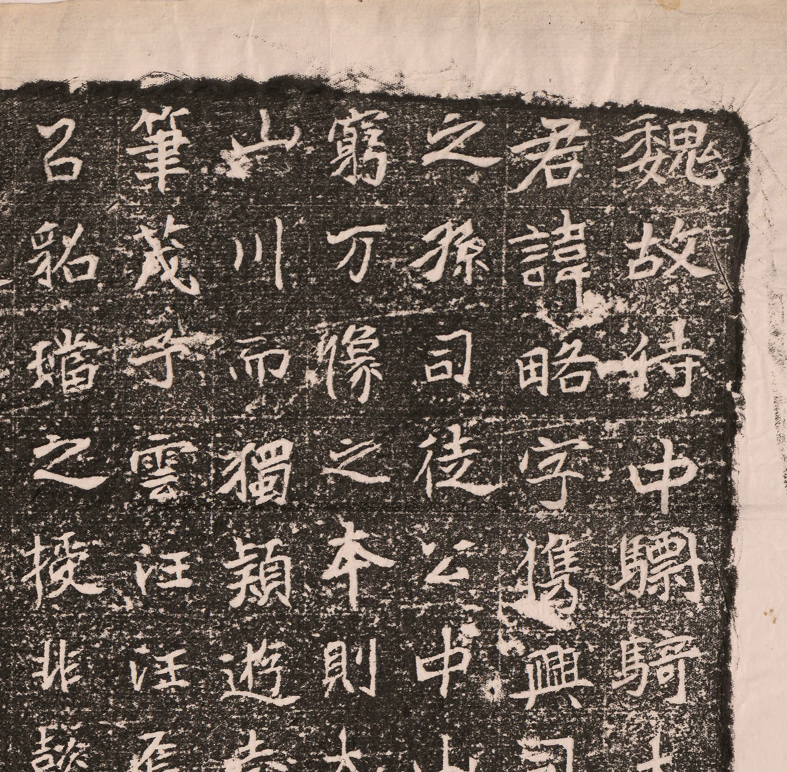 魏故侍中驃騎大
君諱略字儁興司
之孫司徒公中山
窮万像之本則大
山川而獨穎遊
筆茂子雲汪汪焉
㠯貂璫之授非